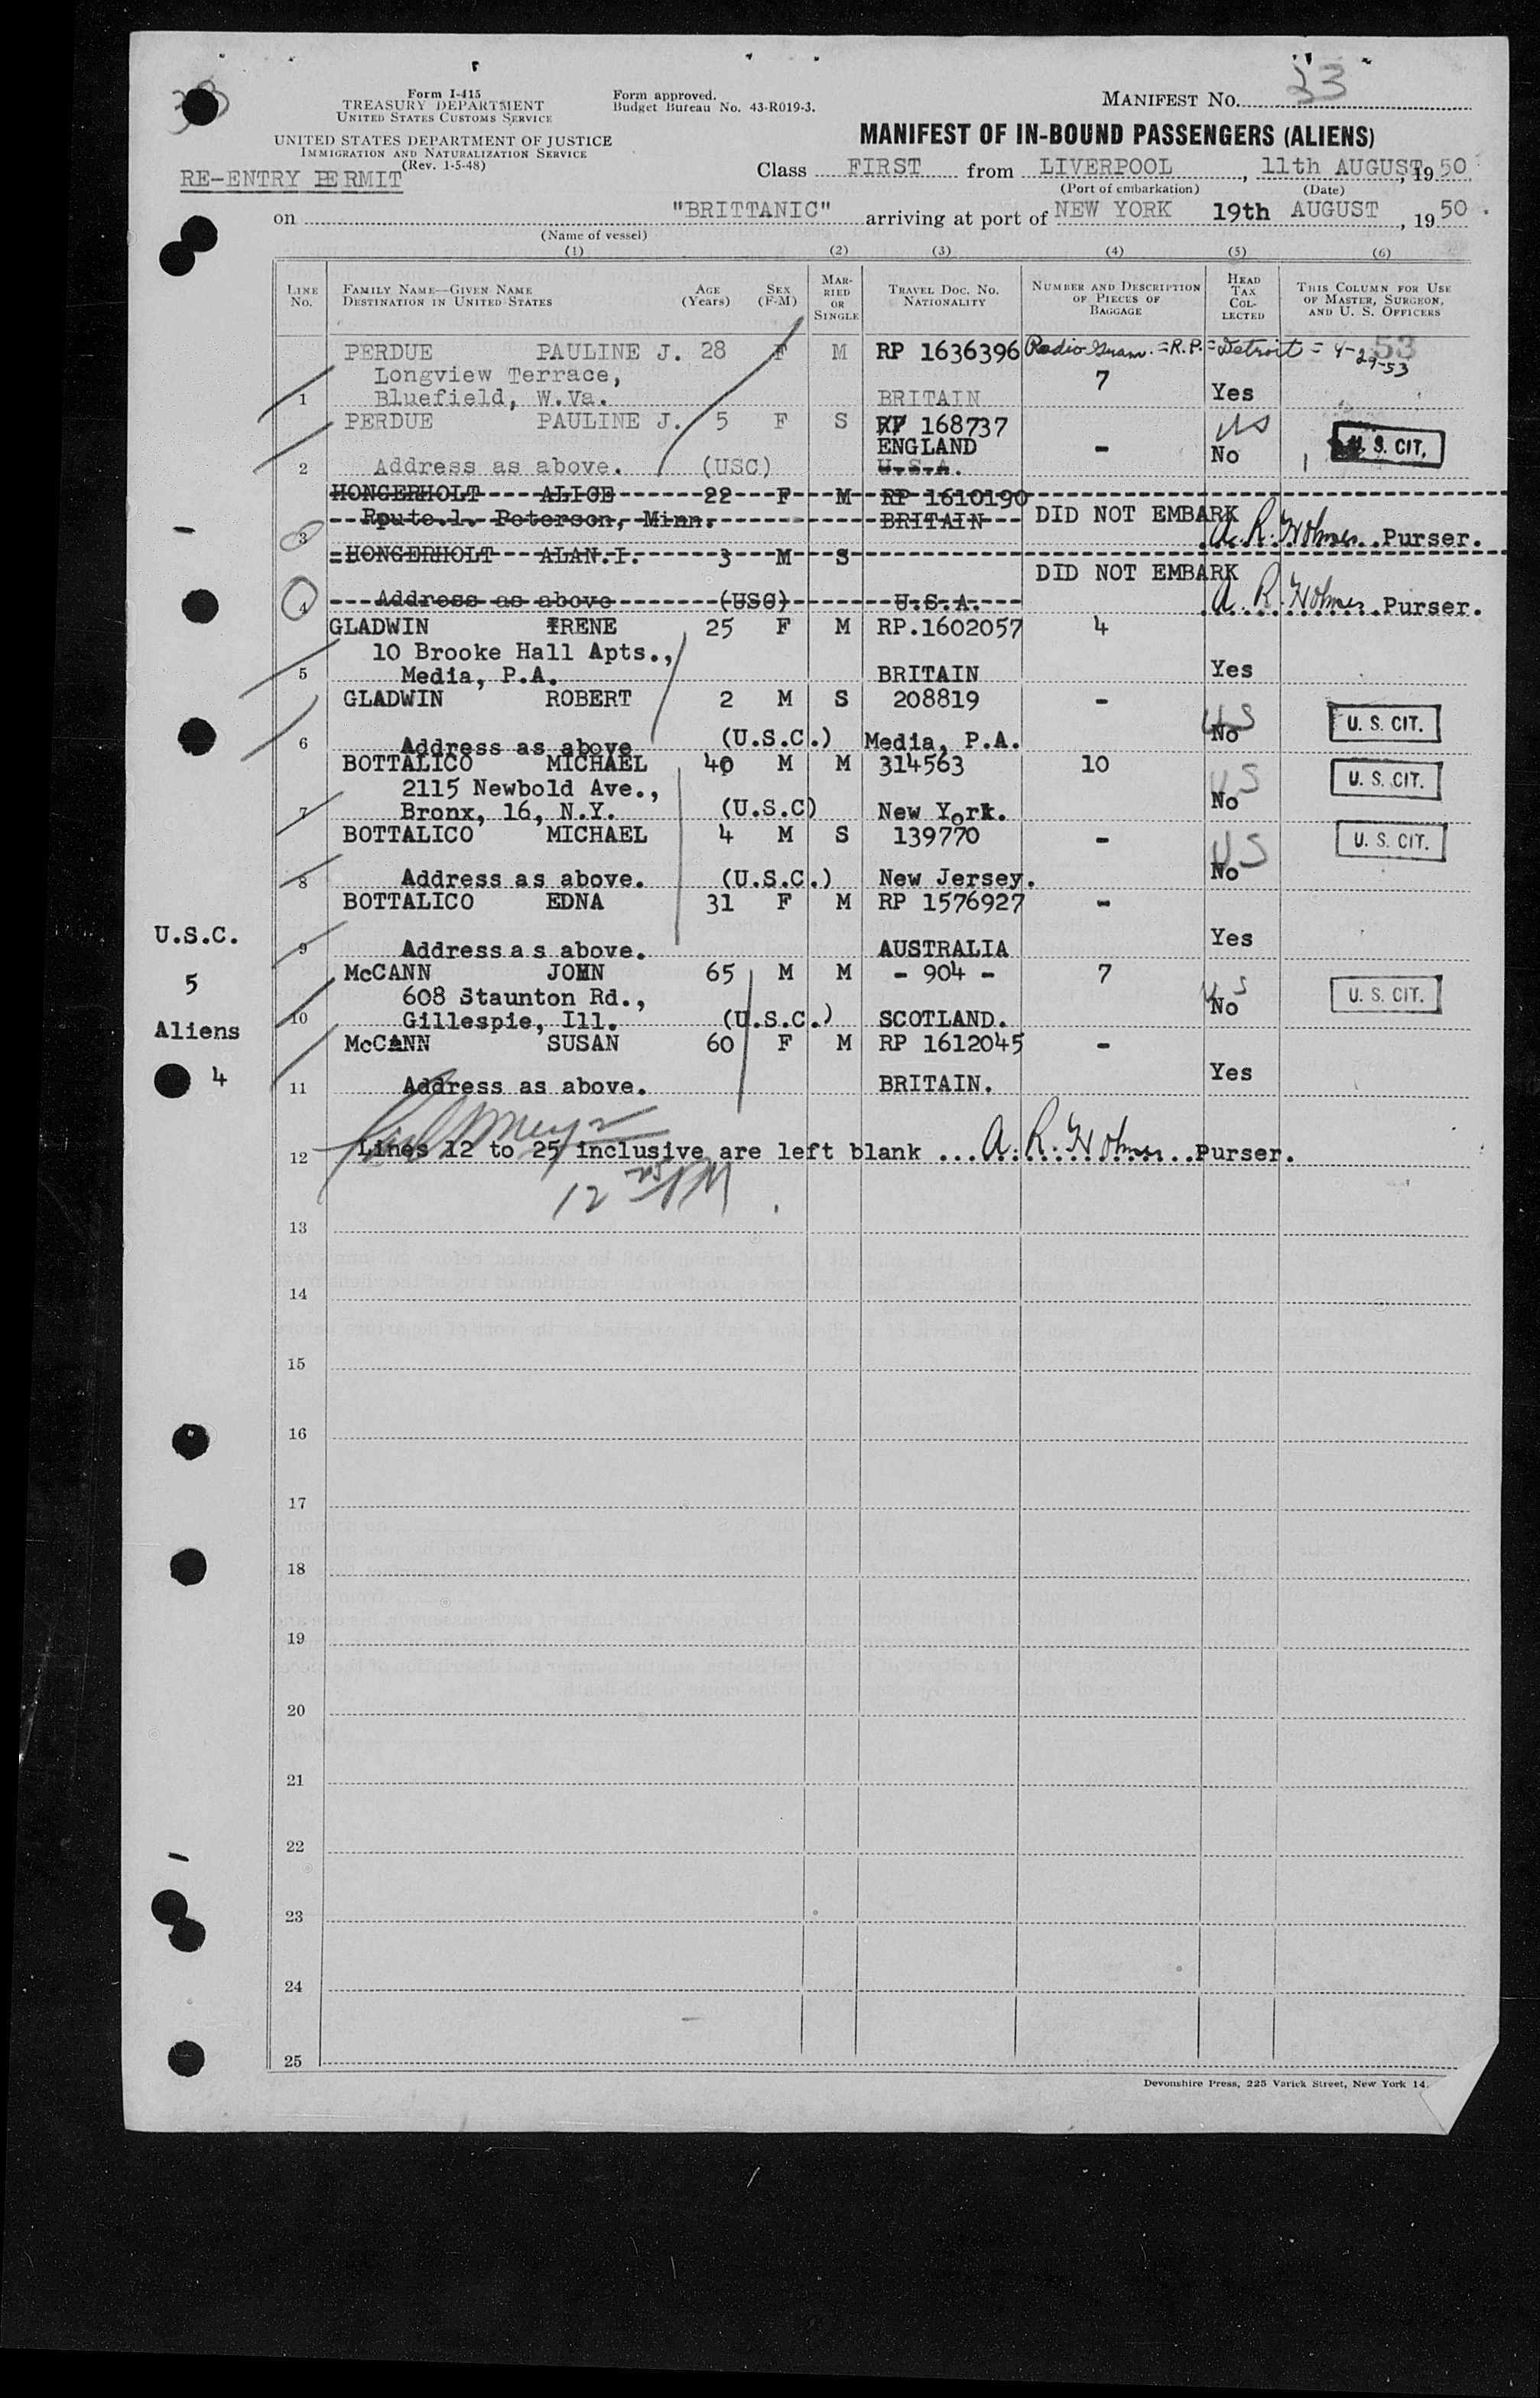 33
Form I-415
TREASURY DEPARTMENT
UNITED STATES CUSTOMS SERVICE
UNITED STATES DEPARTMENT OF JUSTICE
IMMIGRATION AND NATURALIZATION SERVICE
(Rev. 1-5-48)
RE-ENTRY PERMIT
Form approved.
Budget Bureau No. 43-R019-3.
MANIFEST NO. 23
MANIFEST OF IN-BOUND PASSENGERS (ALIENS)
Class FIRST from LIVERPOOL, 11th AUGUST, 1950
(Port of embarkation) (Date)
on "BRITTANIC" arriving at port of NEW YORK 19th AUGUST, 1950.
(Name of vessel)
(1) (2) (3) (4) (5) (6)
LINE NO. FAMILY NAME—GIVEN NAME DESTINATION IN UNITED STATES AGE (Years) SEX (F-M) MARRIED OR SINGLE TRAVEL DOC. NO. NATIONALITY NUMBER AND DESCRIPTION OF PIECES OF BAGGAGE HEAD TAX COLLECTED THIS COLUMN FOR USE OF MASTER, SURGEON, AND U. S. OFFICERS
PERDUE PAULINE J. 28 F M RP 1636396 Radio Gram. = R.P. = Detroit = 4-29-53 53
Longview Terrace, 7
1 Bluefield, W.Va. BRITAIN Yes
PERDUE PAULINE J. 5 F S RP 168737 US
ENGLAND - U. S. CIT.
2 Address as above. (USC) U.S.A. No
HONGERHOLT ALICE 22 F M RP 1610190
3 Route.1. Peterson, Minn. BRITAIN DID NOT EMBARK A. R. Holmes Purser.
HONGERHOLT ALAN.I. 3 M S
DID NOT EMBARK
4 Address as above (USC) U.S.A. A. R. Holmes Purser.
GLADWIN IRENE 25 F M RP.1602057 4
10 Brooke Hall Apts.,
5 Media, P.A. BRITAIN Yes
GLADWIN ROBERT 2 M S 208819 - US U. S. CIT.
6 Address as above (U.S.C.) Media, P.A. No
BOTTALICO MICHAEL 40 M M 314563 10 US U. S. CIT.
2115 Newbold Ave.,
7 Bronx, 16, N.Y. (U.S.C) New York. No
BOTTALICO MICHAEL 4 M S 139770 - US U. S. CIT.
8 Address as above. (U.S.C.) New Jersey. No
BOTTALICO EDNA 31 F M RP 1576927 -
9 Address a s above. AUSTRALIA Yes
U.S.C.
5
Aliens
4
McCANN JOHN 65 M M - 904 - 7 US U. S. CIT.
608 Staunton Rd.,
10 Gillespie, Ill. (U.S.C.) SCOTLAND. No
McCANN SUSAN 60 F M RP 1612045 -
11 Address as above. BRITAIN. Yes
12 Lines 12 to 25 inclusive are left blank ... A. R. Holmes Purser.
12 25 PM
13
14
15
16
17
18
19
20
21
22
23
24
25
Devonshire Press, 225 Varick Street, New York 14.